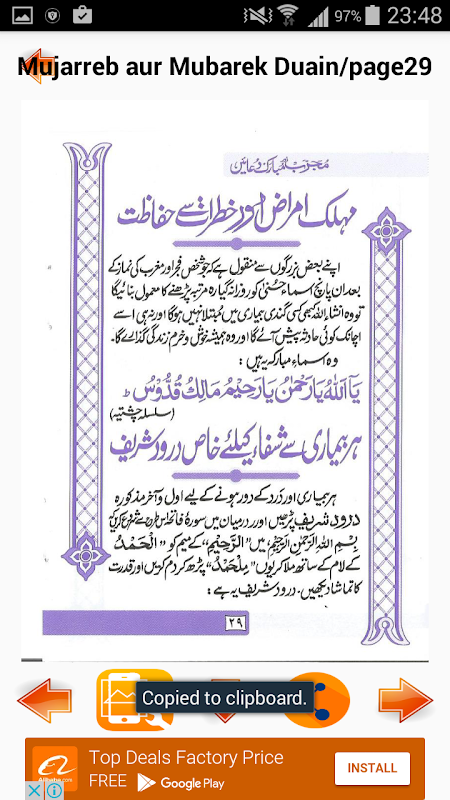 97% 23:48
Mujarreb aur Mubarek Duain/page29
مجرب اور مبارک دعائیں
مہلک امراض اور خطرات سے حفاظت
اپنے بعض بزرگوں سے منقول ہے کہ جو شخص فجر اور مغرب کی نماز کے
بعد ان پانچ اسماءِ حُسنیٰ کو روزانہ گیارہ مرتبہ پڑھنے کا معمول بنائیگا
تو وہ انشاء اللہ کبھی کسی گندی بیماری میں مبتلا نہیں ہوگا اور نہ ہی اسے
اچانک کوئی حادثہ پیش آئے گا اور وہ ہمیشہ خوش و خرم زندگی گذارے گا۔
وہ اسماء مبارکہ یہ ہیں:
یَآ اَللهُ یَارَحْمٰنُ یَارَحِیْمُ مَالِكُ قُدُّوْسُ ط
(سلسلہ چشتیہ)
ہر بیماری سے شفاء کیلئے خاص درود شریف
ہر بیماری اور درد کے دور ہونے کے لیے اول و آخر مذکورہ
درود شریف پڑھیں اور درمیان میں سورۂ فاتحہ اس طرح سے شروع کریں کہ
بِسْمِ اللهِ الرَّحْمٰنِ الرَّحِیْمِ میں "الرَّحِیْمِ" کے میم کو "اَلْحَمْدُ"
کے لام کے ساتھ ملا کر یوں "مِلْحَمْدُ" پڑھ کر دم کریں اور قدرت
کا تماشا دیکھیں۔ درود شریف یہ ہے:
۲۹
Copied to clipboard.
Top Deals Factory Price
FREE Google Play
INSTALL
Alibaba.com